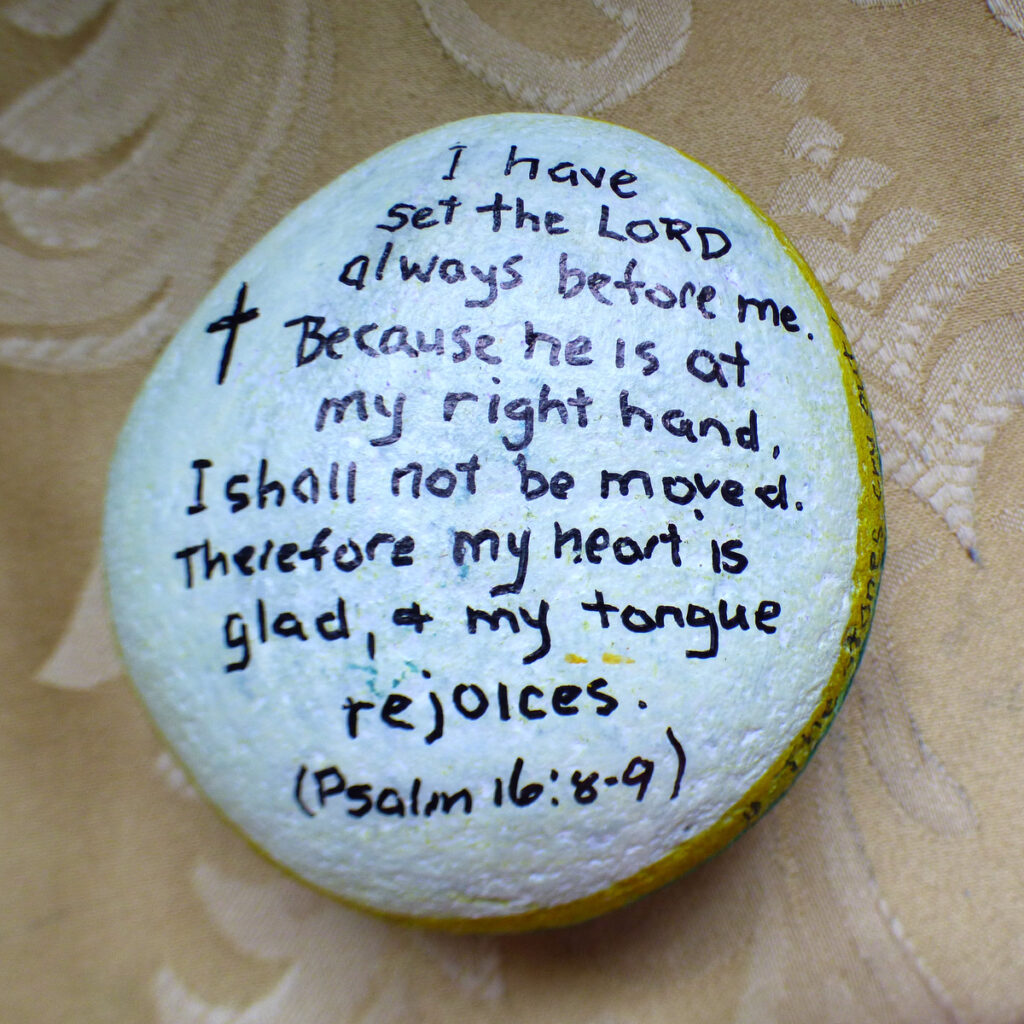 I have
set the LORD
always before me.
Because he is at
my right hand,
I shall not be moved.
Therefore my heart is
glad, & my tongue
rejoices.
(Psalm 16:8-9)
cry out